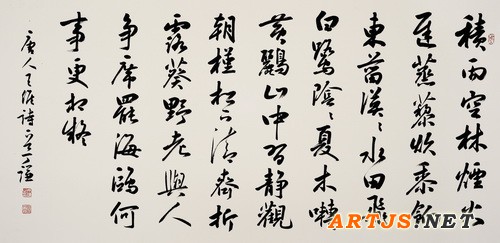 積雨空林煙火
遲蒸藜炊黍餉
東菑漠〻水田飛
白鷺陰〻夏木囀
黃鸝山中習靜觀
朝槿松下清齋折
露葵野老與人
爭席罷海鷗何
事更相疑
唐人王維詩 丁謙
ARTJS.NET